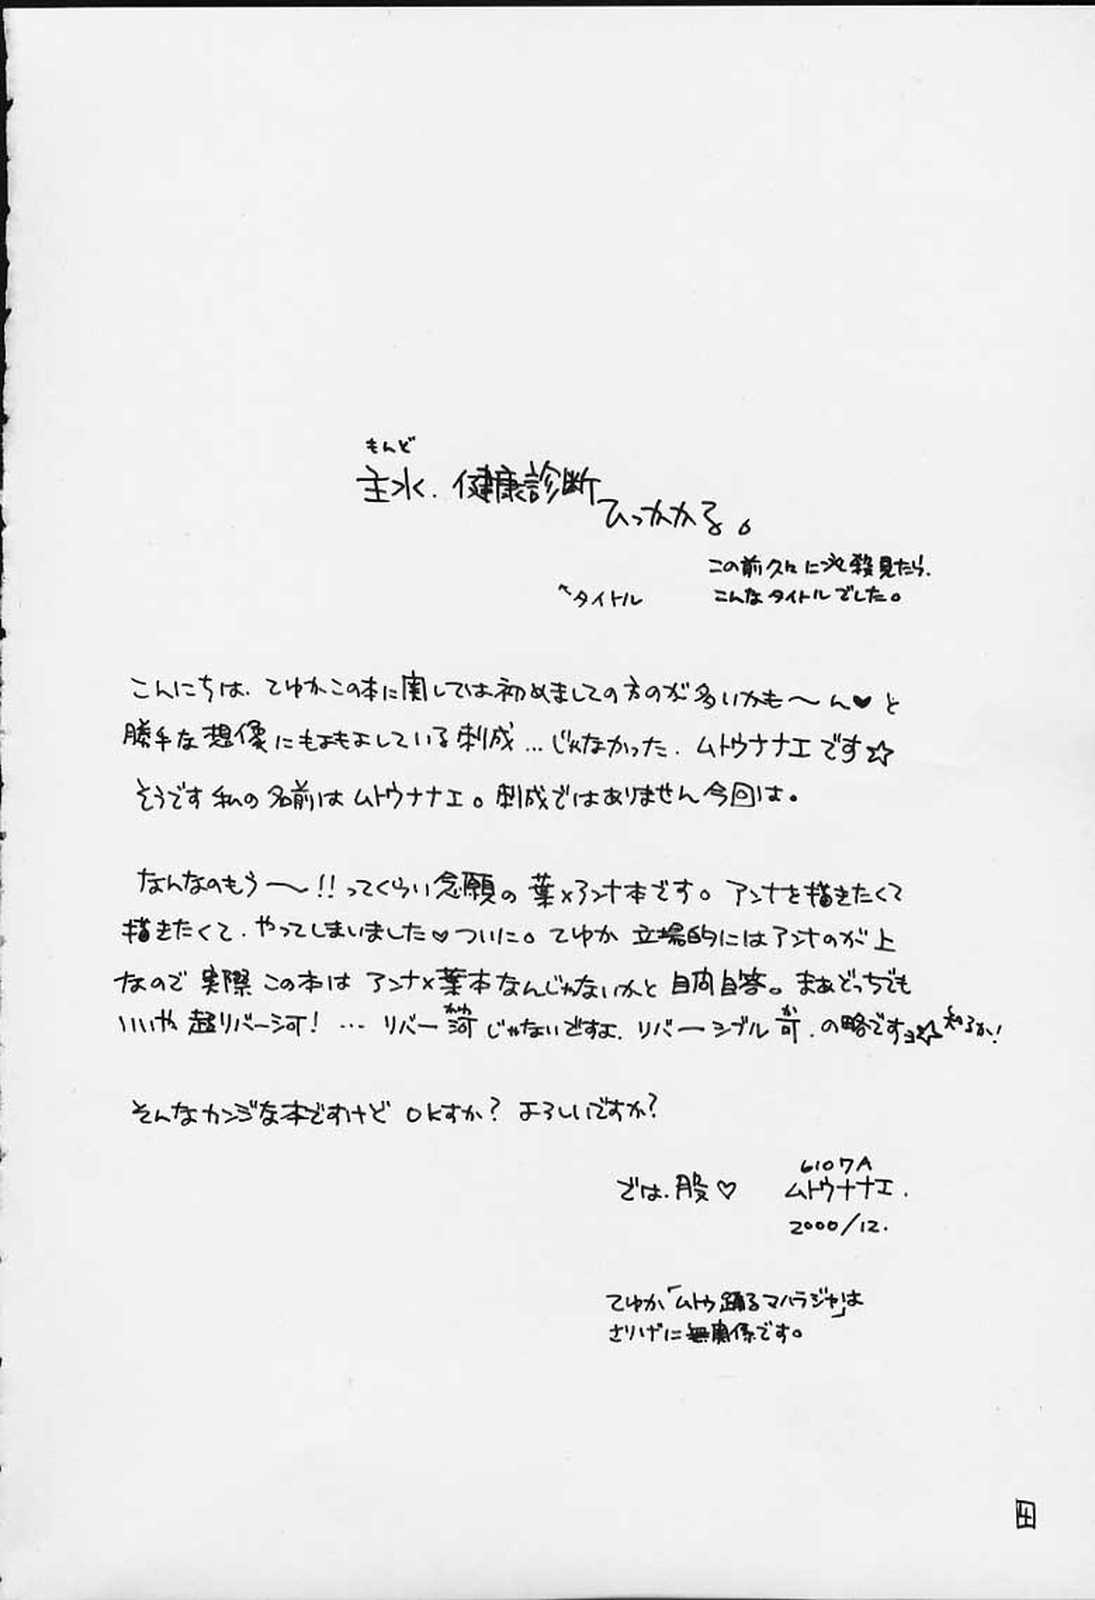 もんど
主水、健康診断
ひっかかる。
この前久々に必殺見たら、
こんなタイトルでした。
↖タイトル
こんにちは、てゆかこの本に関しては初めましての方のが多いかも〜ん♥と
勝手な想像にもよもよしている刺成…じゃなかった、ムトウナナエです☆
そうです私の名前はムトウナナエ。刺成ではありません今回は。
なんなのもう〜!!ってくらい念願の葉×アンナ本です。アンナを描きたくて
描きたくて、やってしまいました♥ついに。てゆか立場的にはアンナのが上
なので実際この本はアンナ×葉本なんじゃないかと自問自答。まぁどっちでも
いいや超リバー河!…リバー河じゃないですよ、リバーシブル可、の略ですョ☆知るか!
かわ
か
そんなカンジな本ですけどOKすか?よろしいですか?
では、股♡
6107A
ムトウナナエ.
2000/12.
てゆか「ムトゥ踊るマハラジャ」は
さりげに無関係です。
4